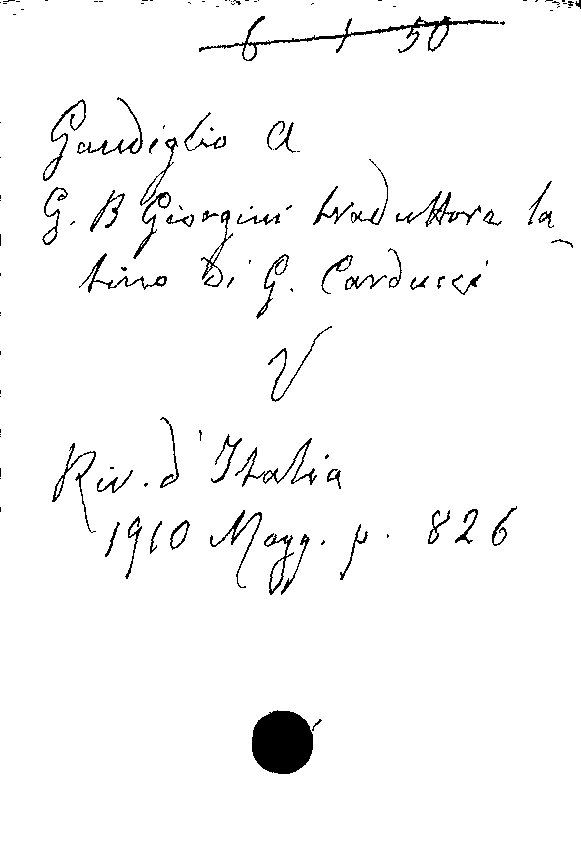 6 1 50
Gandiglio A
G. B Giorgini traduttore la-
tino di G. Carducci
V
Riv. d'Italia
1910 Magg. p. 826